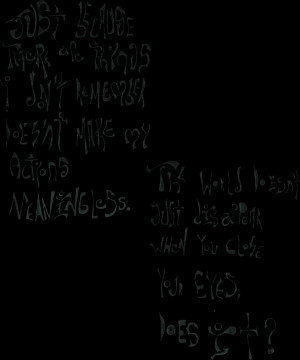 JUST BECAUSE
THERE are THINGS
i DON'T REMEMBER
DOESN'T MAKE MY
ACTIONS
MEANINGLESS.
THE WORLD DOESN'T
JUST DISAPPEAR
WHEN YOU CLOSE
YOUR EYES,
DOES iT?